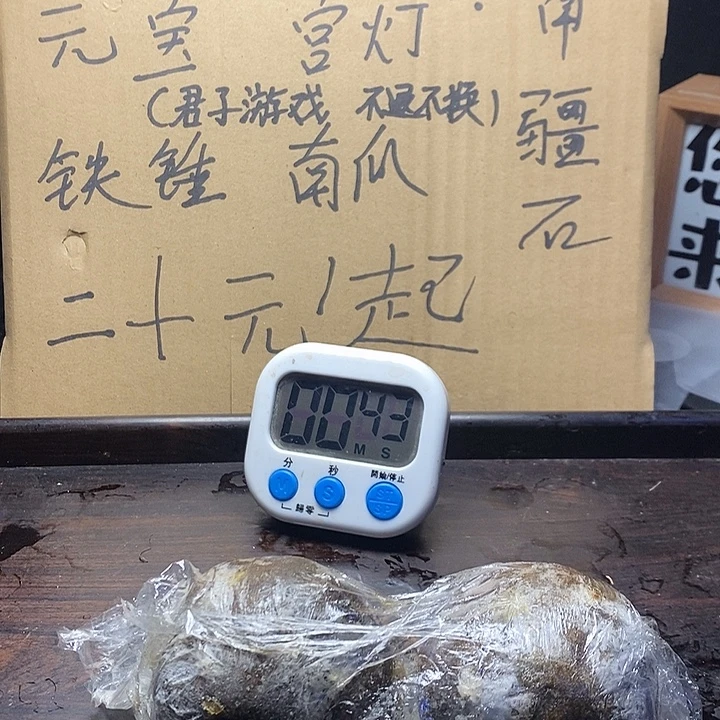 元宝 宫灯
(君子游戏 不退不换)
铁锤 南瓜
二十元/起
疆
石
00 43
M S
分 秒 開始/停止
M S ST/SP
歸零
您
来